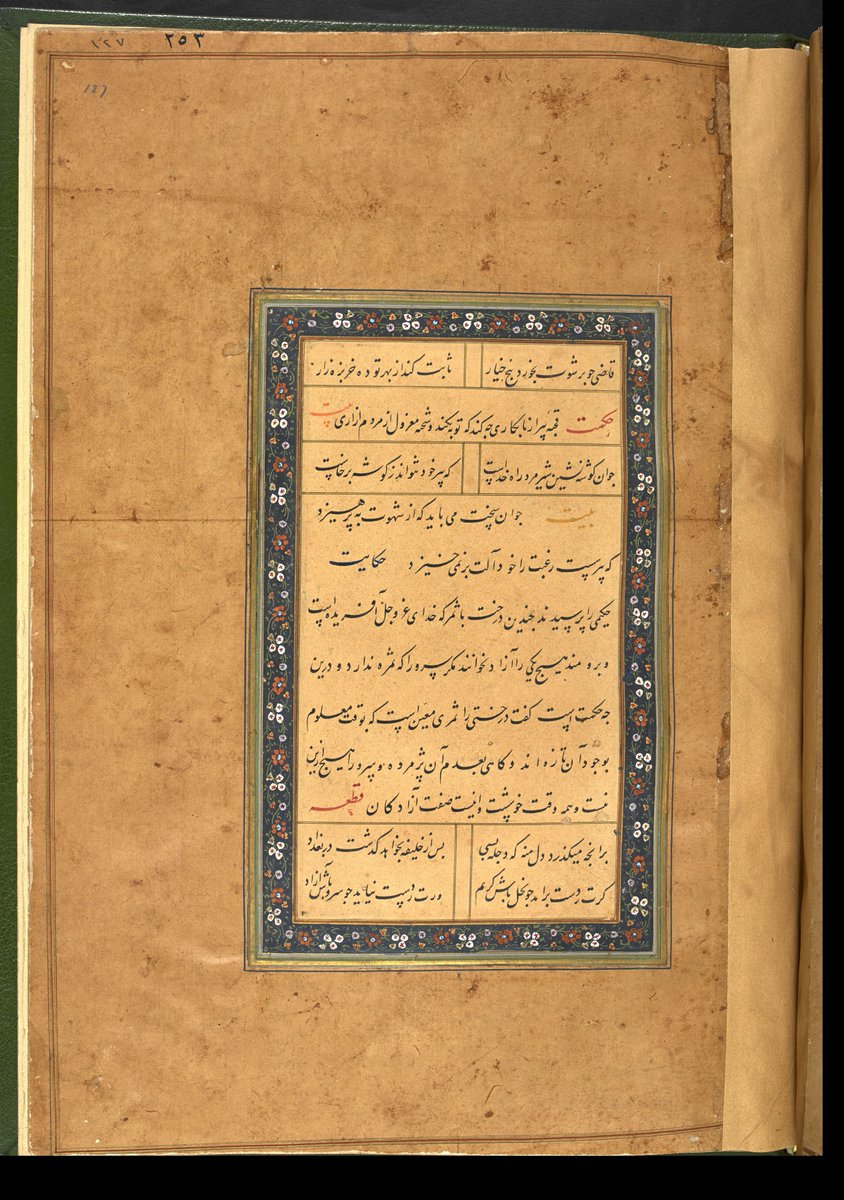 ۲۵۳ ۱۲۷
127
قاضی چو برشوت بخورد پنج خیار ثابت کند از بهر تو ده خربزه زار
حکمت قحبه پیر از نابکاری چه کند که توبه نکند و شحنه معزول از مردم ازاری بیت
جوان گوشه نشین شیر مرد راه خداست که پیر خود نتواند ز گوشه برخاست
بیت جوان سخت می باید که از شهوت بپرهیزد
که پیر سست رغبت را خود آلت بر نمی خیزد حکایت
حکیمی را پرسیدند چندین درخت با ثمر که خدای عز وجل آفریده است
و برومند هیچ یکی را آزاد نخوانند مگر سرو را که ثمره ندارد و درین
چه حکمت است گفت درختی را ثمری معین است که بوقت معلوم
بوجود آن تازه اند و گاهی بعدم آن پژمرده و سرو را هیچ ازین
نیست و همه وقت خوشست و اینست صفت آزادگان قطعه
برانچه میگذرد دل منه که دجله بسی پس از خلیفه بخواهد گذشت در بغداد
گرت ز دست براید چو نخل باش کریم ورت ز دست نیاید چو سرو باش آزاد